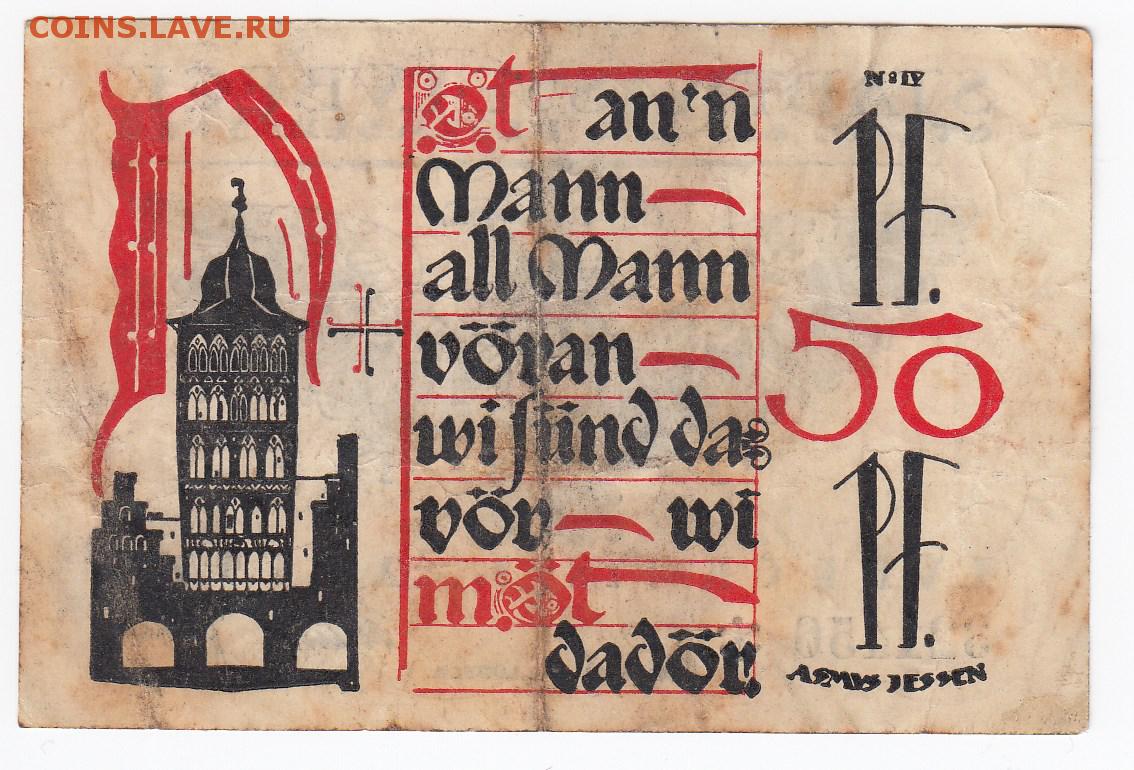 COINS.LAVE.RU
Not an'n
Mann
all Mann
vöran
wi sünd da:
vör wi
möt
dadör.
No IV
PF.
50
PF.
ASMUS JESSEN